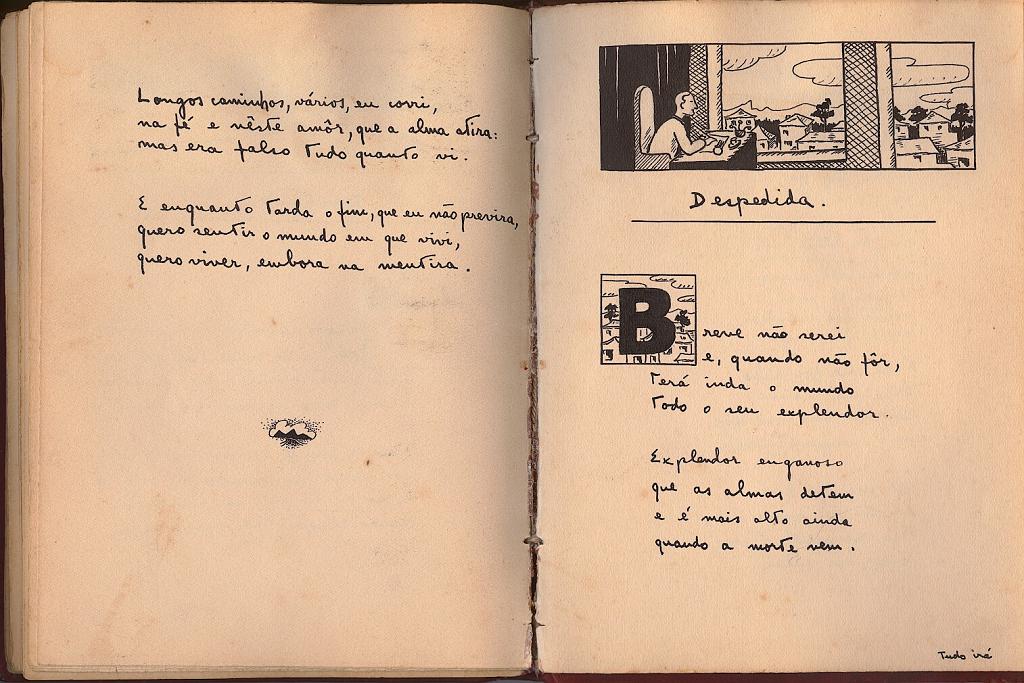 Longos caminhos, vários, eu corri,
na fé e nêste amôr, que a alma atira:
mas era falso tudo quanto vi.
E enquanto tarda o fim, que eu não previra,
quero sentir o mundo em que vivi,
quero viver, embora na mentira.
Despedida.
Breve não serei
e, quando não fôr,
Terá inda o mundo
Todo o seu explendor.
Explendor enganoso
que as almas detem
e é mais alto ainda
quando a morte vem.
Tudo irá